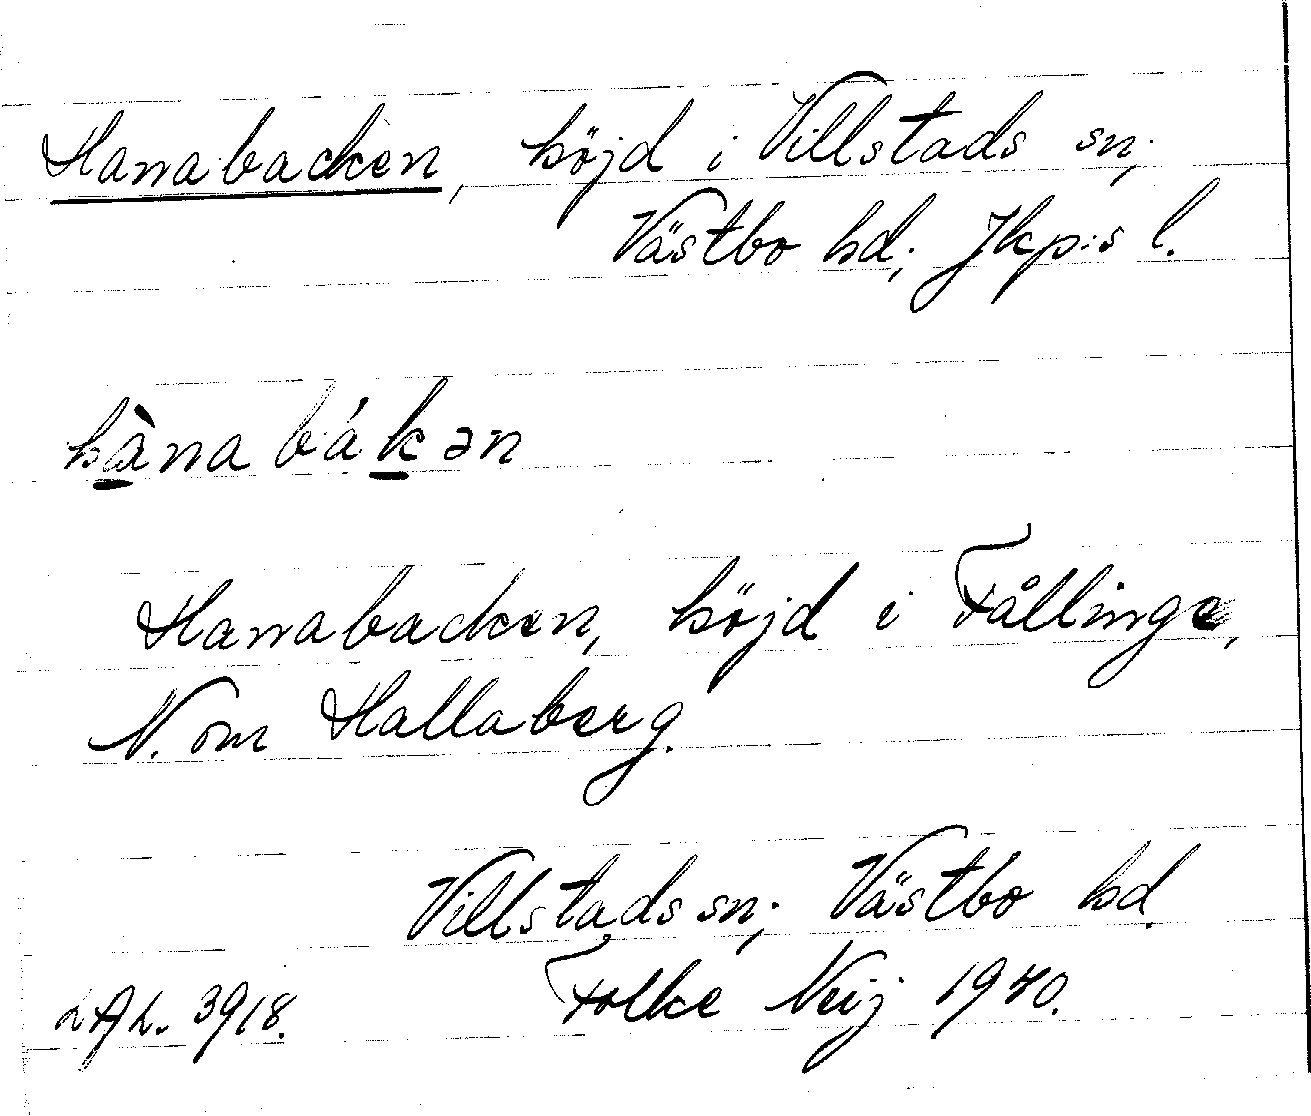 Hanabacken, höjd i Villstads sn;
Västbo hd; Jkp:s l.
hànabákən
Hanabacken, höjd i Fållinge,
N. om Hallaberg.
Villstads sn; Västbo hd.
LAL. 3918. Folke Neij 1940.